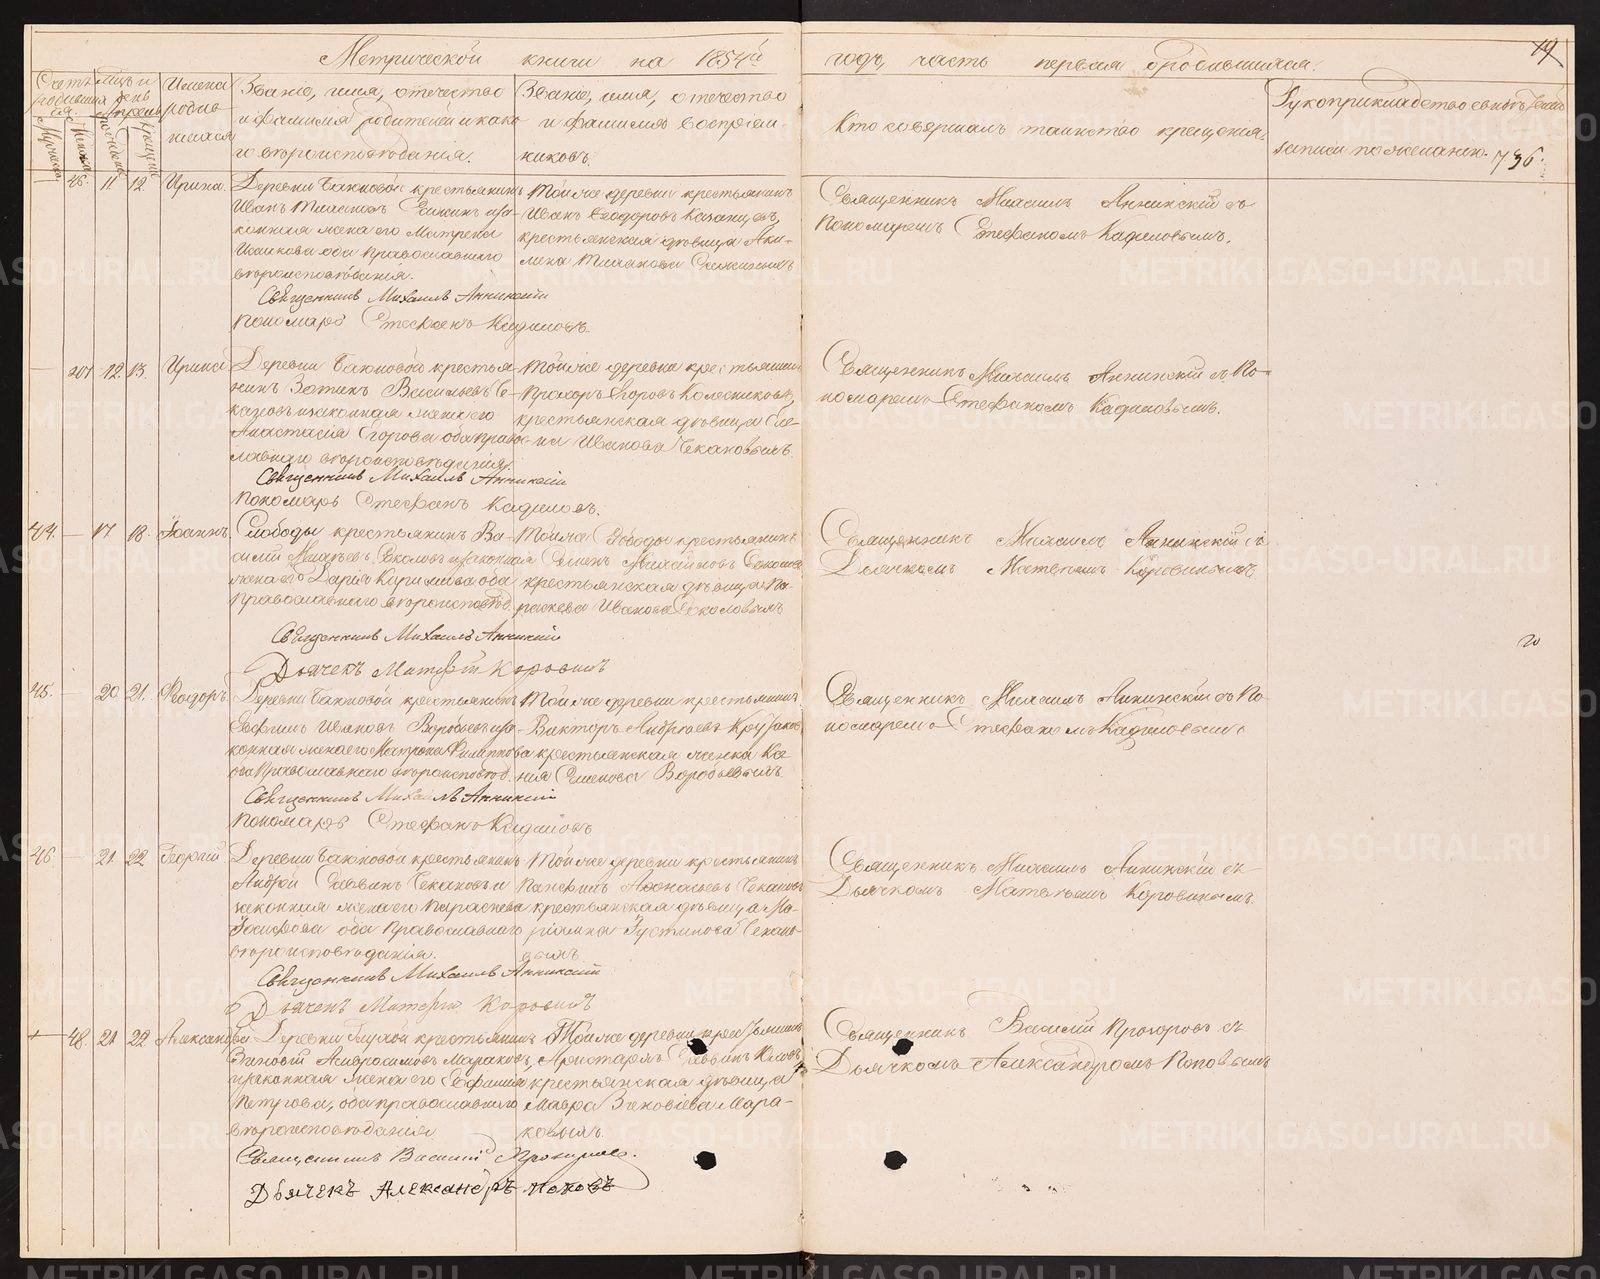 Метрической книги на 1854й годъ, часть первая о родившихся.
19
Счетъ родившихся.
Мужеска
Женска
Мѣсяцъ и день
Апрель
рожденiя
крещенiя
Имена родившихся
Званiе, имя, отечество
и фамилiя родителей и како-
го вѣроисповѣданiя.
Званiе, имя, отечество
и фамилiя воспрiем-
никовъ.
Кто совершалъ таинство крещенiя.
Рукоприкладство свидѣтелей
записи по желанiю.
736.
46. 11 12. Ирина.
Деревни Баженовой крестьянинъ
Иванъ и за-
конная жена его Матрена
оба православнаго
вѣроисповѣданiя.
Священникъ Михаилъ Аннинскiй
Пономарь Стефанъ Кадиловъ.
Той же деревни крестьянинъ
Иванъ Ѳеодоровъ Казанцовъ,
крестьянская дѣвица Аки-
лина
Священникъ Михаилъ Аннинскiй съ
Пономаремъ Стефаномъ Кадиловымъ.
12. 13. Ирина
Деревни Баженовой крестья-
нинъ Зотикъ Васильевъ Че-
кановъ и законная жена его
Анастасiя Егорова оба право-
славнаго вѣроисповѣданiя.
Священникъ Михаилъ Аннинскiй
Пономарь Стефанъ Кадиловъ.
Той же деревни крестьянинъ
Прохоръ Егоровъ Колесниковъ,
крестьянская дѣвица Еле-
на Иванова Чекановыхъ.
Священникъ Михаилъ Аннинскiй съ По-
номаремъ Стефаномъ Кадиловымъ.
44. — 17 18. Iоаннъ.
Слободы крестьянинъ Ва-
силiй Соколовъ и законная
жена его Дарiя Кирилова оба
православнаго вѣроисповѣд.
Священникъ Михаилъ Аннинскiй
Дьячекъ Матвѣй Коровинъ
Той же Слободы крестьянинъ
Семенъ Михайловъ Соколовъ
крестьянская дѣвица Па-
раскева Иванова Соколовыхъ
Священникъ Михаилъ Аннинскiй съ
Дьячкомъ Матвѣемъ Коровинымъ
20
45. — 20 21. Ѳеодоръ.
Деревни Баженовой крестьянинъ
Ефимъ Ивановъ Воробьевъ и за-
конная жена его Матрона Филиппова
оба православнаго вѣроисповѣд.
Священникъ Михаилъ Аннинскiй
Пономарь Стефанъ Кадиловъ
Той же деревни крестьянинъ
Викторъ Андреевъ
крестьянская женка Ксе-
нiя Семенова Воробьевыхъ
Священникъ Михаилъ Аннинскiй съ По-
номаремъ Стефаномъ Кадиловымъ
46. — 21. 22. Георгiй
Деревни Баженовой крестьянинъ
Андрей Саввинъ Чекановъ и
законная жена его Параскева
Iосифова оба православнаго
вѣроисповѣданiя.
Священникъ Михаилъ Аннинскiй
Дьячекъ Матвѣй Коровинъ
Той же деревни крестьянинъ
Панфилъ Аѳонасьевъ Чекановъ
крестьянская дѣвица Ма-
рiамна Iустинова Чекано-
выхъ
Священникъ Михаилъ Аннинскiй съ
Дьячкомъ Матвѣемъ Коровинымъ.
48. 21 22 Александра
Деревни крестьянинъ
Зиновiй Амвросимовъ Мараковъ,
и законная жена его Евфимiя
Петрова, оба православнаго
вѣроисповѣданiя
Священникъ Василiй Прохоровъ.
Дьячекъ Александръ Поповъ
Той же деревни крестьянинъ
Аристархъ Саввинъ
крестьянская дѣвица
Мавра Зиновiева Мара-
ковыхъ.
Священникъ Василiй Прохоровъ съ
Дьячкомъ Александромъ Поповымъ
METRIKI.GASO-URAL.RU